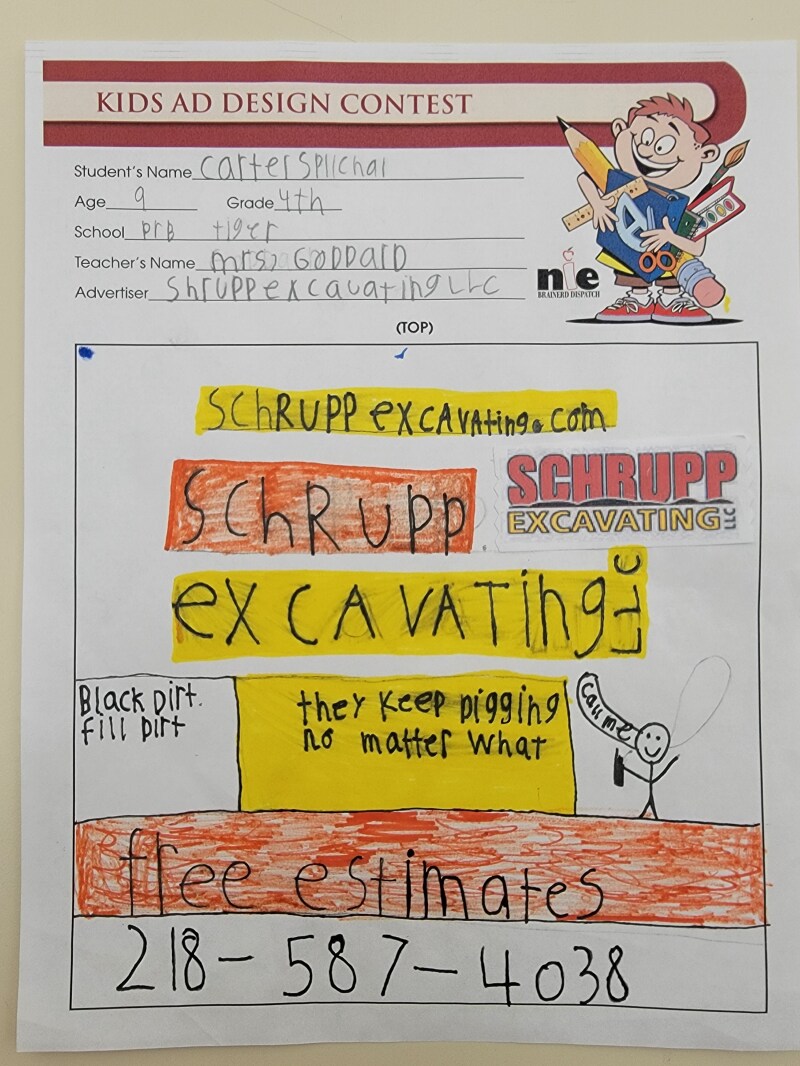 KIDS AD DESIGN CONTEST
Student's Name Carter Splichal
Age 9 Grade 4th
School prb tiger
Teacher's Name mrs. GODDARD
Advertiser Shrupp excavating LLC
nie
BRAINERD DISPATCH
(TOP)
SChRUPP exCAVAting.com
SChRupp
SCHRUPP
EXCAVATING LLC
exCAVATing LLC
Black Dirt.
fill Dirt
they keep Digging
no matter what
Call me
free estimates
218-587-4038